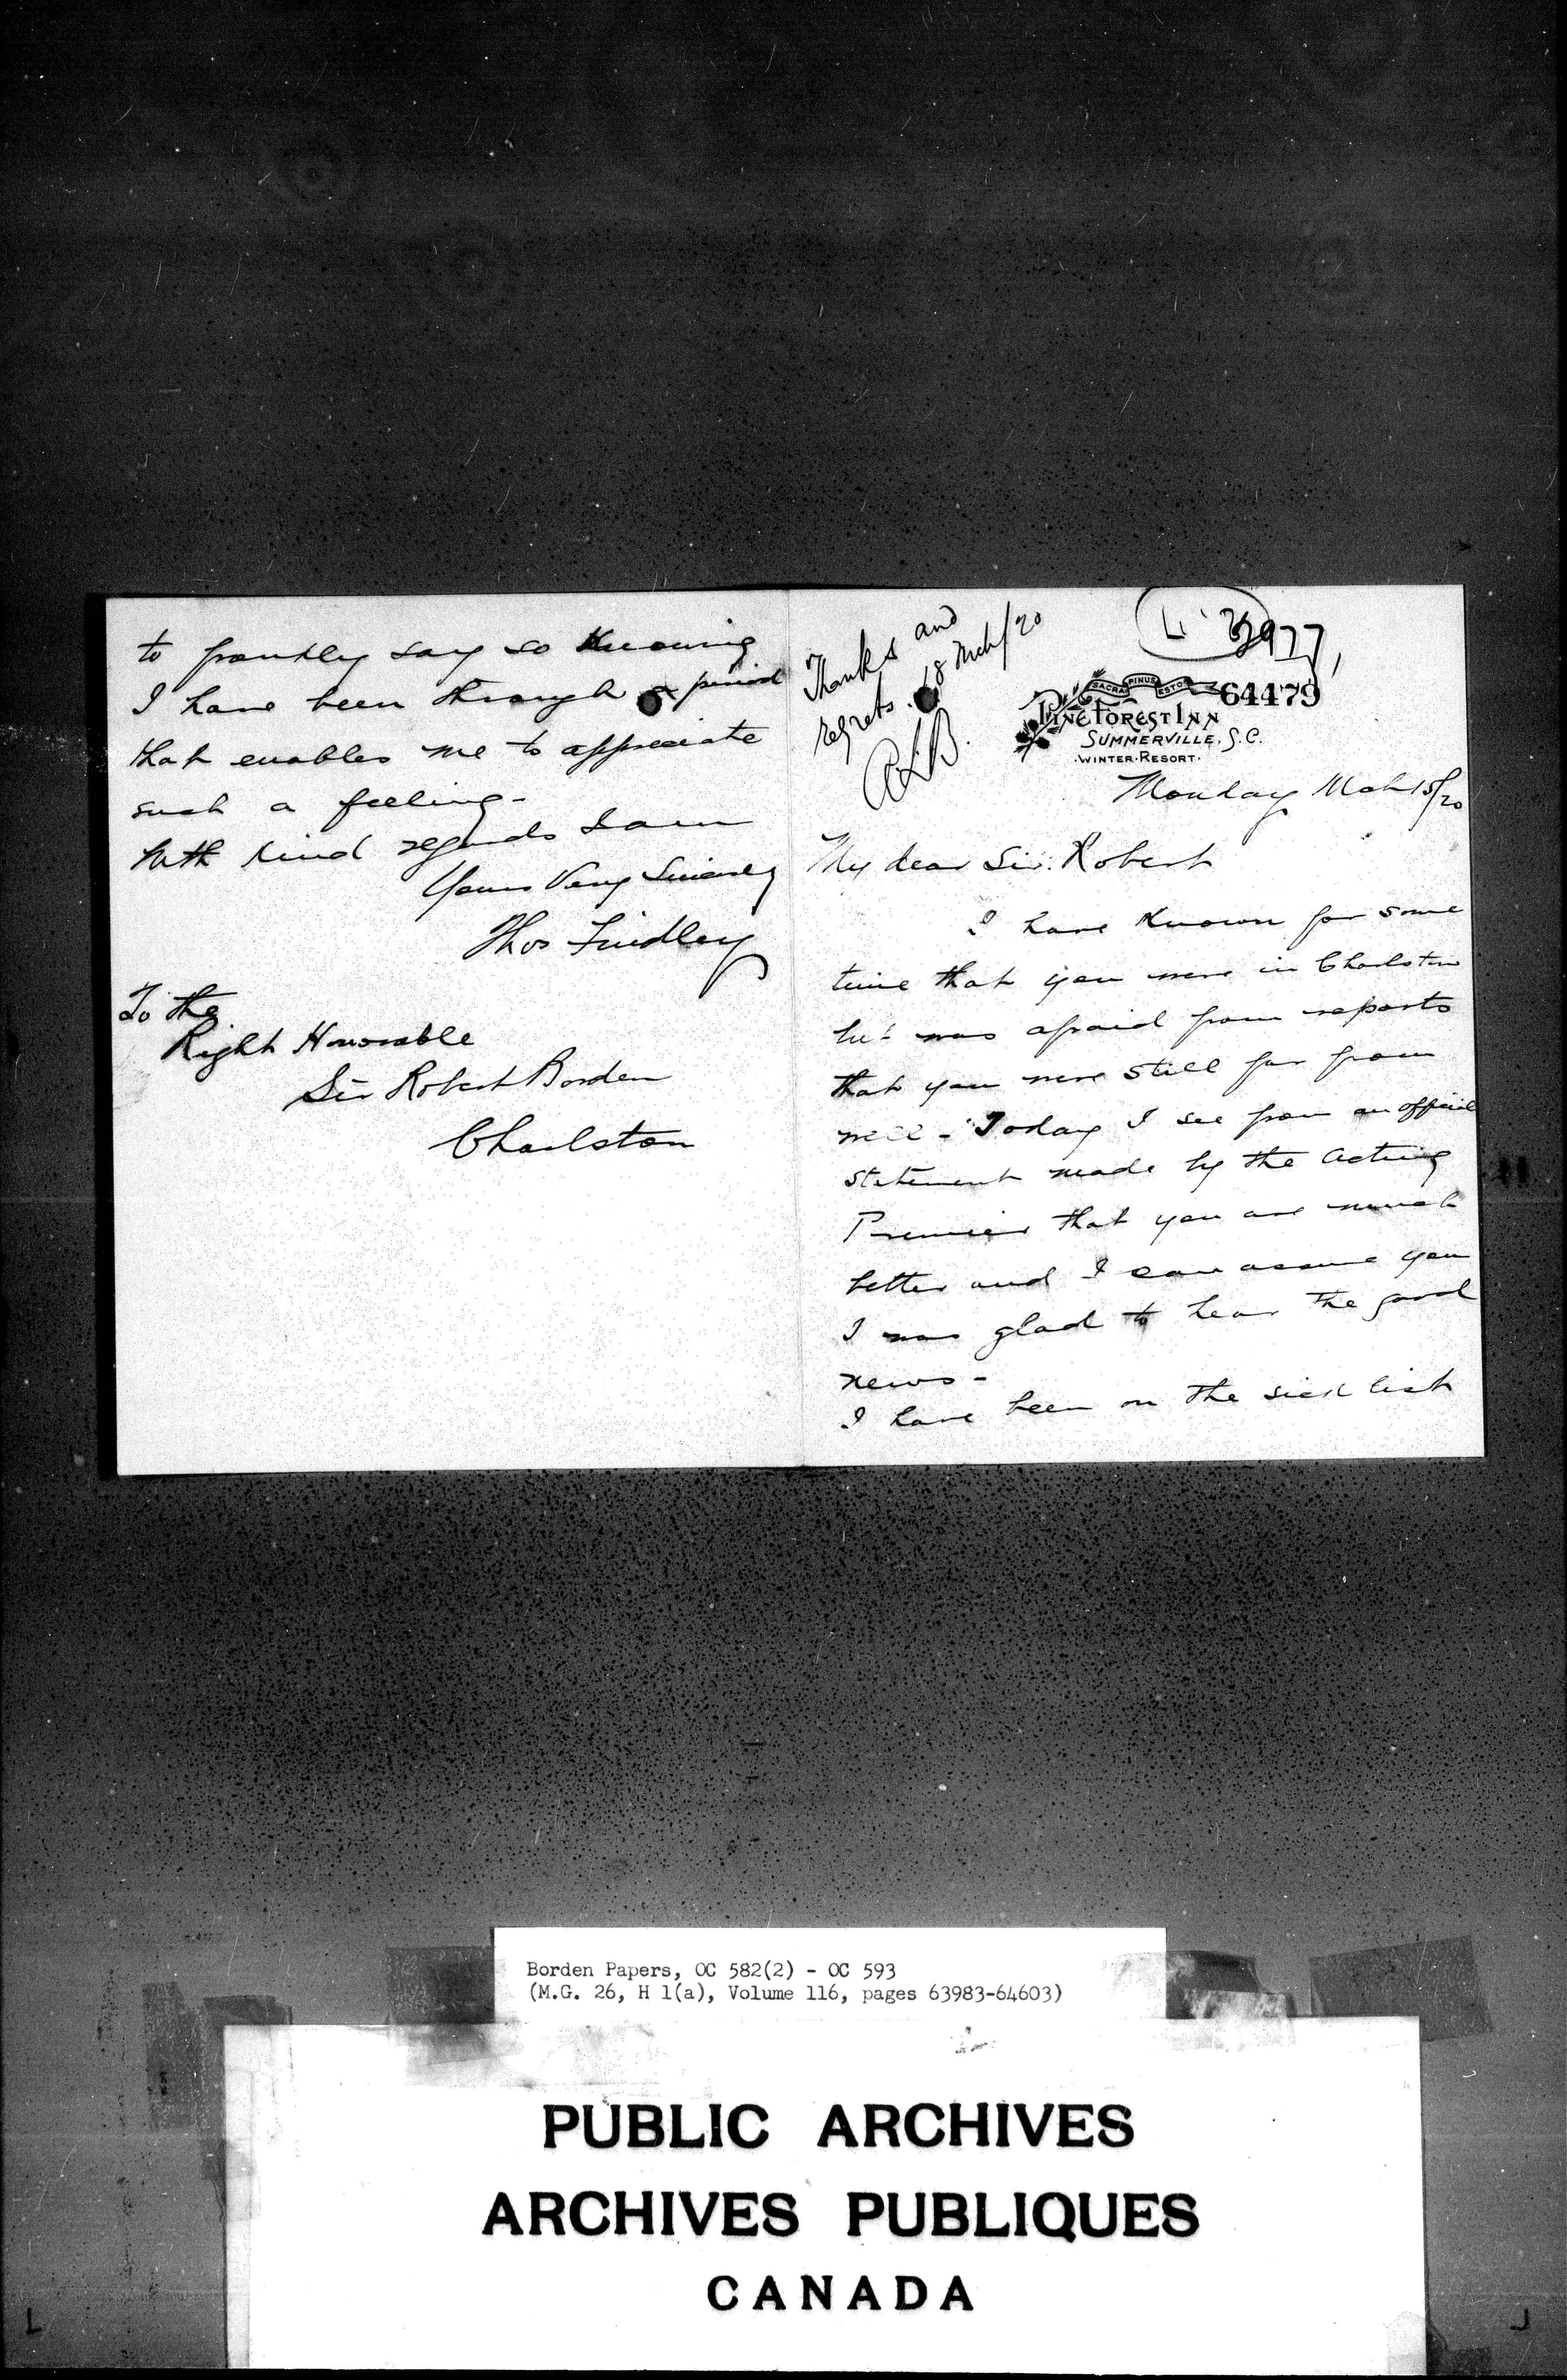 to frankly say so Knowing
I have been through a period
that enables me to appreciate
such a feeling -
With kind regards I am
Yours Very Sincerely
Thos Findley
To the
Right Honorable
Sir Robert Borden
Charlston
Thanks and
regrets. 18 Mch/20
RLB.
3977
64479
SACRA PINUS ESTO
PINE FOREST INN
SUMMERVILLE, S.C.
.WINTER.RESORT.
Monday Mch 15/20
My dear Sir Robert
I have known for some
time that you were in Charlston
but was afraid from reports
that you were still far from
well - Today I see from an official
statement made by the Acting
Premier that you are much
better and I can assure you
I was glad to hear the good
news -
I have been on the sick list
Borden Papers, OC 582(2) - OC 593
(M.G. 26, H 1(a), Volume 116, pages 63983-64603)
PUBLIC ARCHIVES
ARCHIVES PUBLIQUES
CANADA